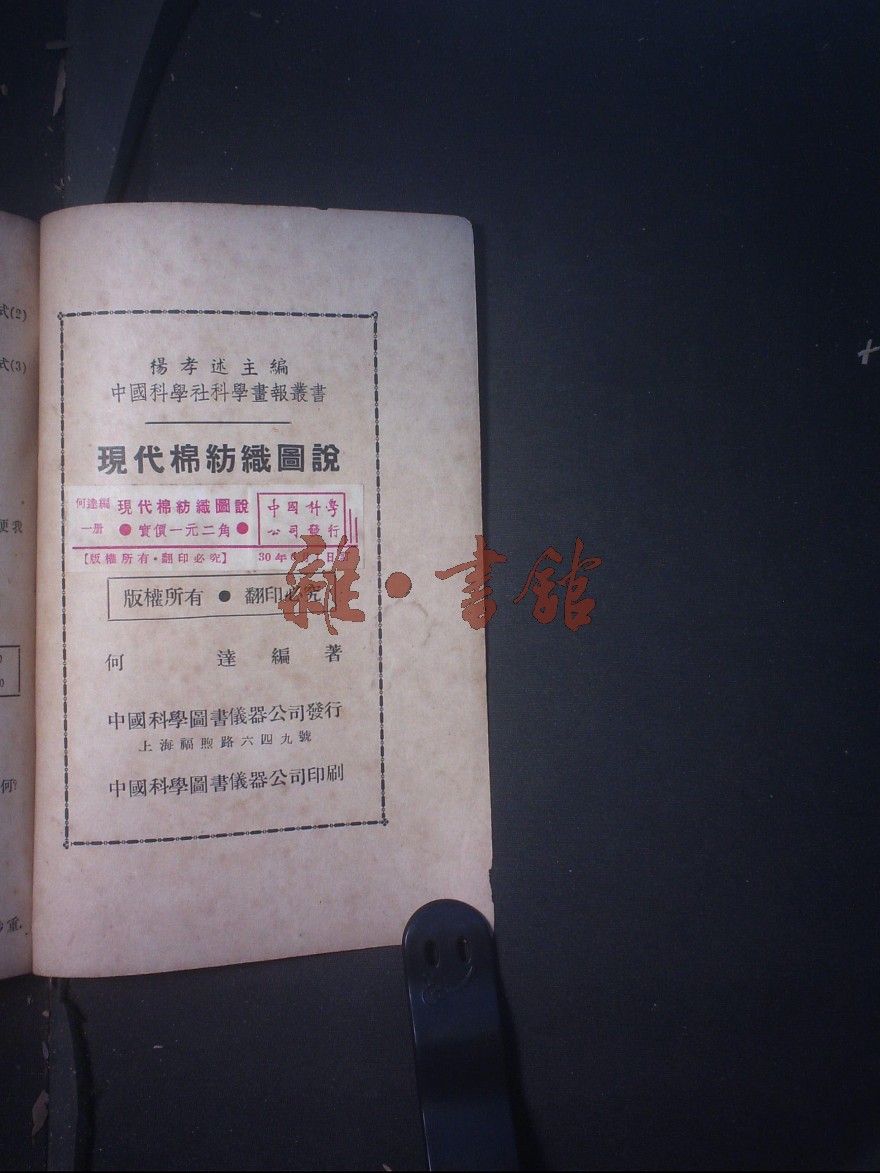 式(2)
式(3)
便我
何?
重.
楊孝述主編
中國科學社科學畫報叢書
現代棉紡織圖說
何達編 現代棉紡織圖說 中國科學
一册 ●實價一元二角● 公司發行
【版權所有·翻印必究】 30年6月1日
版權所有 ● 翻印必究
何達編著
中國科學圖書儀器公司發行
上海福煦路六四九號
中國科學圖書儀器公司印刷
雜·書館